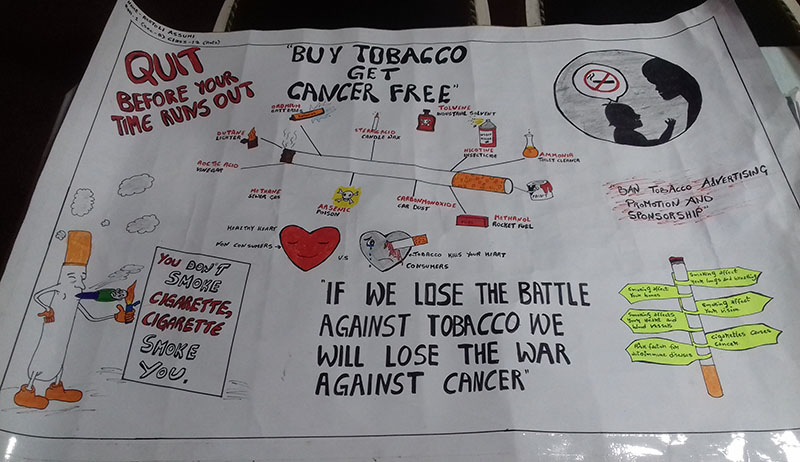 NAME: BARTOLI ASSUMI
QUIT
BEFORE YOUR
TIME RUNS OUT
"BUY TOBACCO
GET
CANCER FREE"
BUTANE
LIGHTER
STEARIC ACID
CANDLE WAX
TOLVENE
INDUSTRIAL SOLVENT
NICOTINE
INSECTICIDE
AMMONIA
TOILET CLEANER
ACETIC ACID
VINEGAR
METHANE
ARSENIC
POISON
CARBONMONOXIDE
CAR DUST
METHANOL
ROCKET FUEL
PAINT
"BAN TOBACCO ADVERTISING
PROMOTION AND
SPONSORSHIP"
HEALTHY HEART
NON CONSUMERS
V.S
TOBACCO KILLS YOUR HEART
CONSUMERS
YOU DON'T
SMOKE
CIGARETTE,
CIGARETTE
SMOKE
YOU.
"IF WE LOSE THE BATTLE
AGAINST TOBACCO WE
WILL LOSE THE WAR
AGAINST CANCER"
Smoking affect
Your lungs and
Smoking affect
Your bones
Smoking affect
Your Vision
Smoking affects
Your Heart and
blood vessels
Cigarettes causes
Cancer
Risk factor for
autoimmune diseases